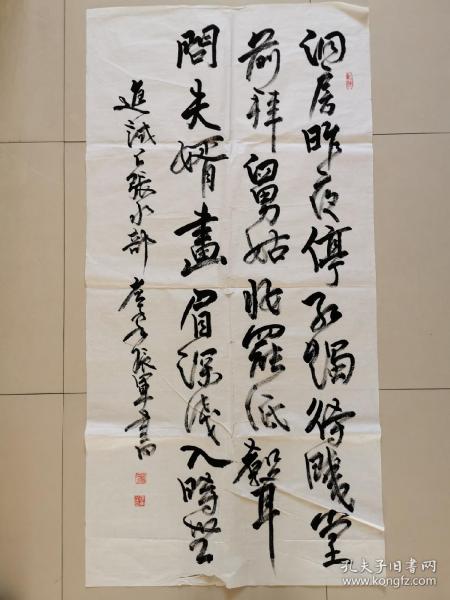 洞房昨夜停紅燭待曉堂
前拜舅姑妝罷低聲
問夫婿畫眉深淺入時無
進試上張水部 張軍書
孔夫子旧书网
www.kongfz.com